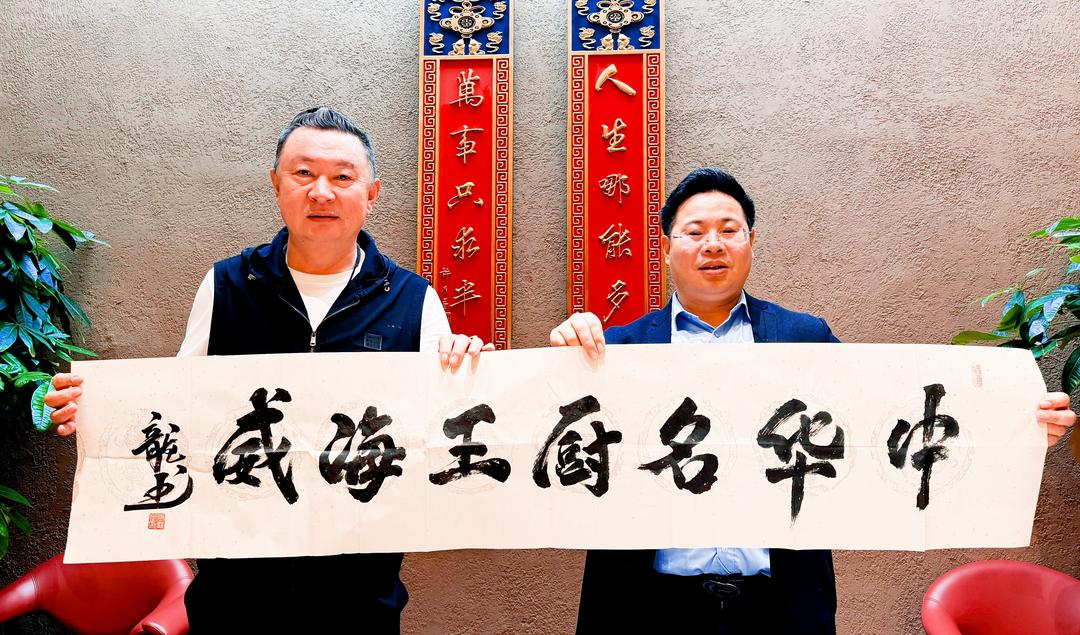 人生哪能多
萬事只求半
中华名厨王海威
龍书